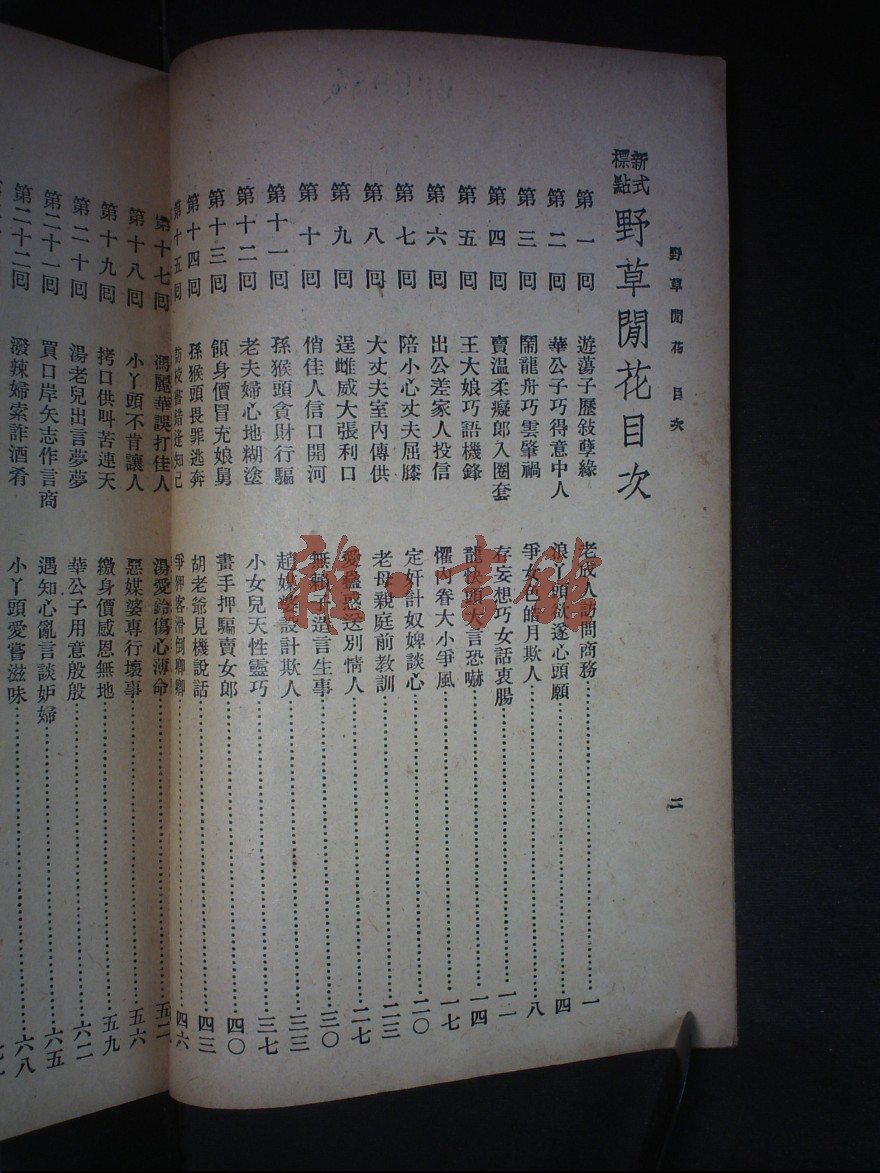 野草閒花 目次
二
新式標點 野草閒花目次
第一囘 遊蕩子歷敍孽緣 老成人訪問商務 一
第二囘 華公子巧得意中人 浪丫頭欲遂心頭願 四
第三囘 鬧龍舟巧雲肇禍 爭女色皓月欺人 八
第四囘 賣温柔癡郎入圈套 存妄想巧女話衷腸 一一
第五囘 王大娘巧語機鋒 龍快頭大言恐嚇 一四
第六囘 出公差家人投信 懼內眷大小爭風 一七
第七囘 陪小心丈夫屈膝 定奸計奴婢談心 二〇
第八囘 大丈夫室內傳供 老母親庭前教訓 二三
第九囘 逞雌威大張利口 受蠱惑送別情人 二七
第十囘 俏佳人信口開河 無賴子造言生事 三〇
第十一囘 孫猴頭貪財行騙 趙媒婆設計欺人 三三
第十二囘 老夫婦心地糊塗 小女兒天性靈巧 三七
第十三囘 領身價冒充娘舅 畫手押騙賣女郎 四〇
第十四囘 孫猴頭畏罪逃奔 胡老爺見機說話 四三
第十五囘 錯迷知己 爭押客滑倒卿卿 四六
第十七囘 馮麗華誤打佳人 湯愛鈴傷心薄命 五二
第十八囘 小丫頭不肯讓人 惡媒婆專行壞事 五六
第十九囘 拷口供叫苦連天 繳身價感恩無地 五九
第二十囘 湯老兒出言夢夢 華公子用意殷殷 六二
第二十一囘 買口岸矢志作言商 遇知心亂言談妒婦 六五
第二十二囘 潑辣婦索詐酒肴 小丫頭愛嘗滋味 六八
雜·書館